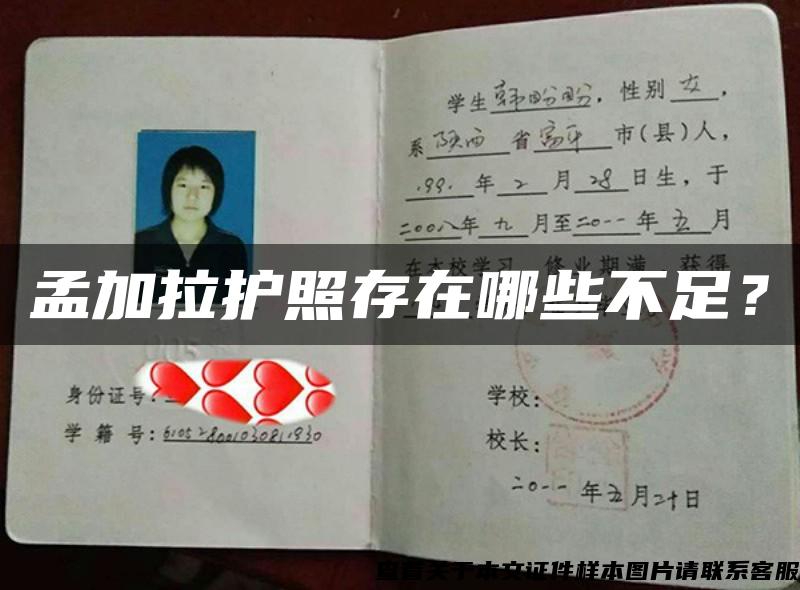 学生韩盼盼，性别女，
系陕西省富平市(县)人，
1991年2月28日生，于
二00八年九月至二0一一年五月
在本校学习，修业期满，获得
孟加拉护照存在哪些不足？
身份证号：
学籍号：610528001030811930
学校：
校长：
二0一一年五月二十日
查看关于本文证件样本图片请联系客服